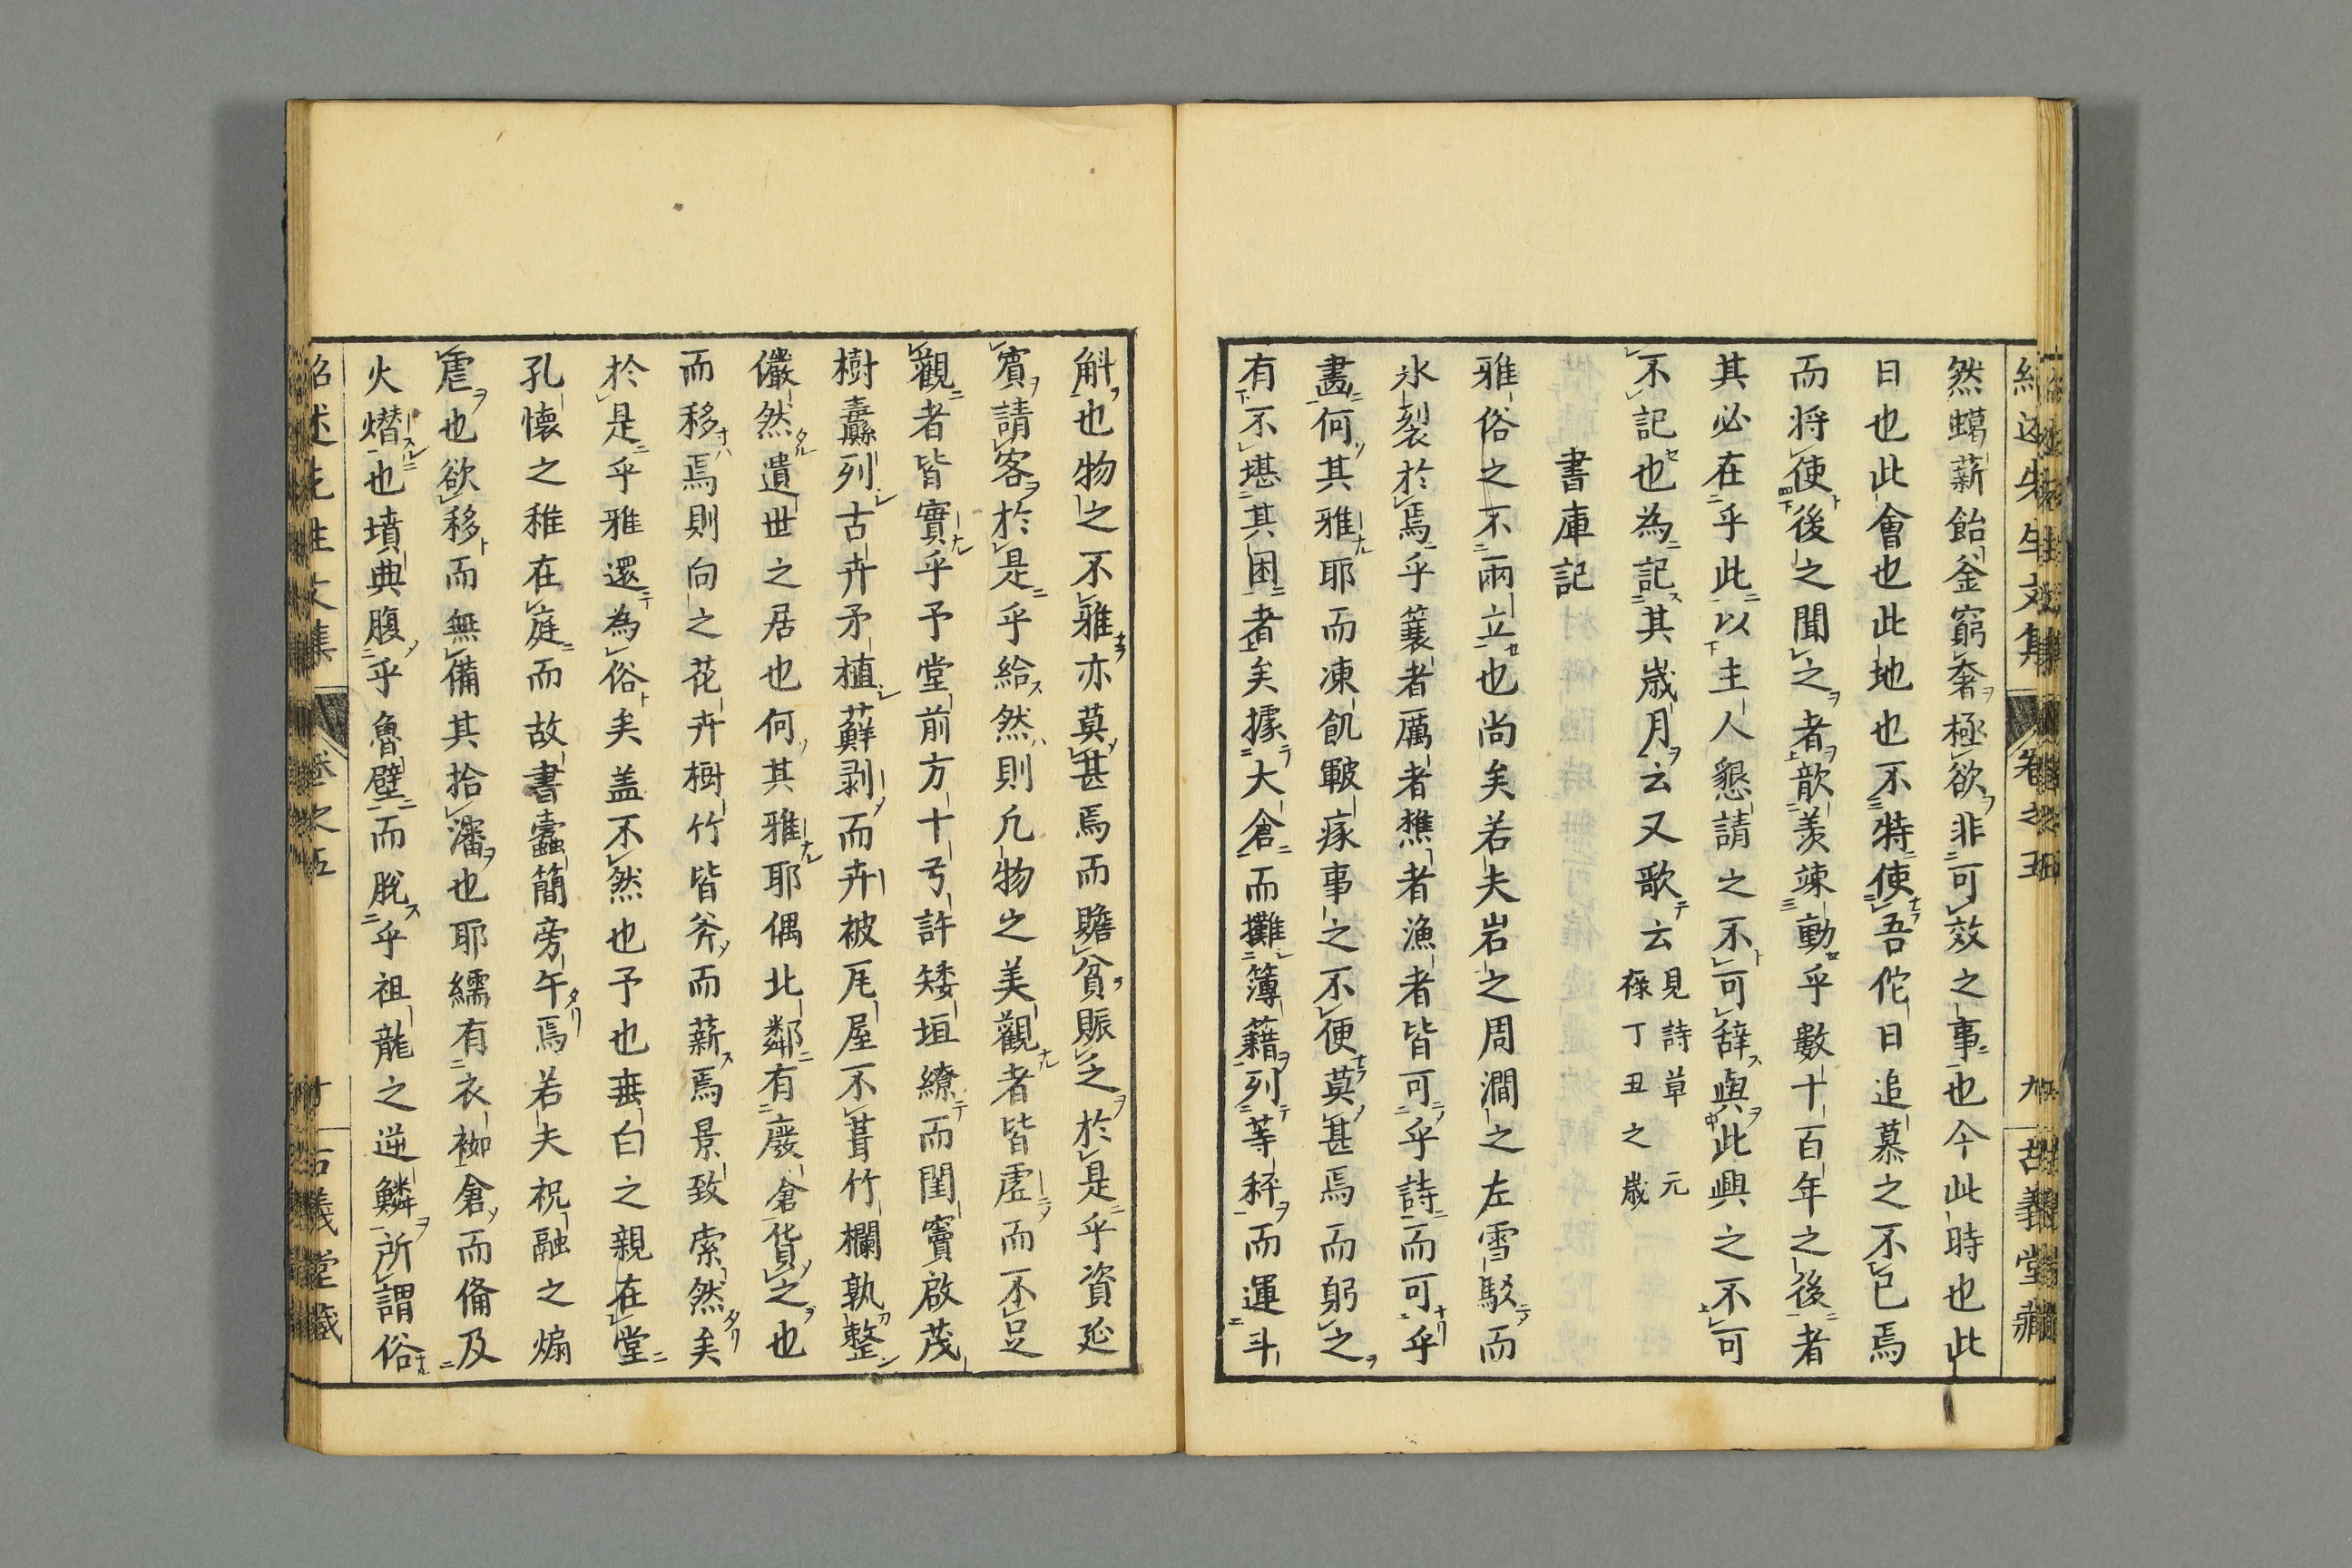 然蠟薪飴釜窮奢極欲非可效之事也今此時也此
日也此會也此地也不特使吾佗日追慕之不已焉
而将使後之聞之者歆羨竦動乎數十百年之後者
其必在乎此以主人懇請之不可辞與此興之不可
不記也為記其歳月云又歌云見詩草元
禄丁丑之歳
書庫記
雅俗之不兩立也尚矣若夫岩之周澗之左雪駁而
氷裂於焉乎簑者厲者樵者漁者皆可乎詩而可乎
畫何其雅耶而凍飢皸瘃事之不便莫甚焉而躬之
有不堪其困者矣據大倉而攤簿籍列等秤而運斗
斛也物之不雅亦莫甚焉而贍貧賑乏於是乎資延
賓請客於是乎給然則凢物之美觀者皆虛而不足
觀者皆實乎予堂前方十弓許矮垣繚而閨竇啟茂
樹纛列古卉矛植蘚剥而卉被瓦屋不葺竹欄孰整
儼然遺世之居也何其雅耶偶北鄰有廢倉貨之也
而移焉則向之花卉樹竹皆斧而薪焉景致索然矣
於是乎雅還為俗矣盖不然也予也垂白之親在堂
孔懐之稚在庭而故書蠹簡旁午焉若夫祝融之煽
虐也欲移而無備其拾瀋也耶繻有衣袽倉而俻及
火熸也墳典腹乎魯壁而脫乎祖龍之逆鱗所謂俗
紹述先生文集 卷之五 九 古義堂藏
紹述先生文集 卷之五 十 古義堂藏